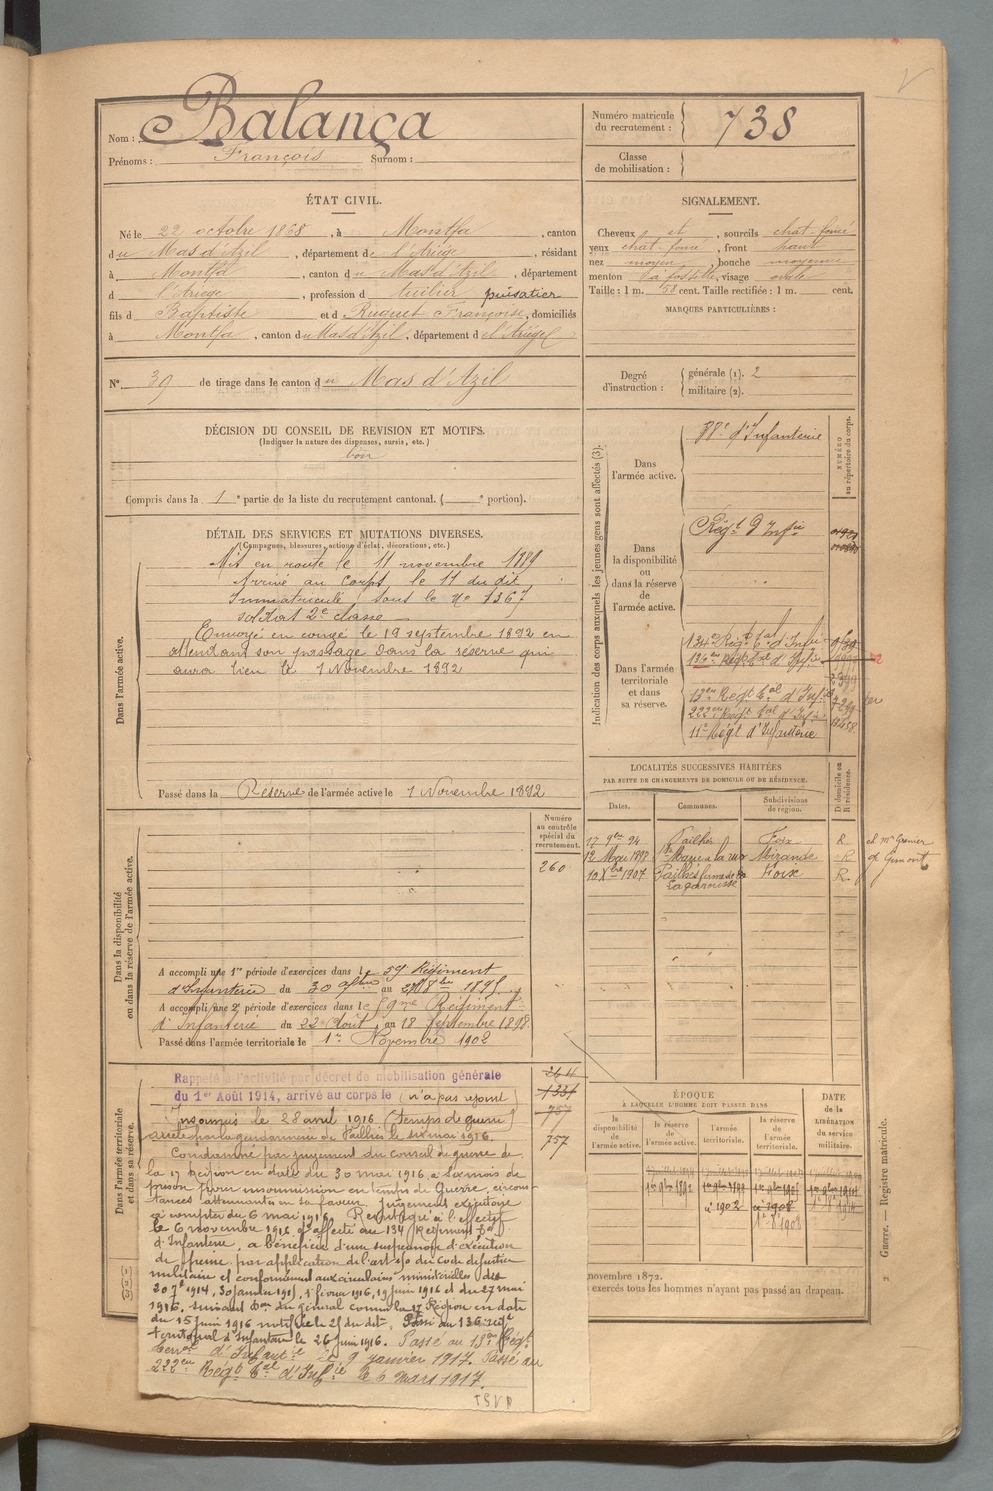 Nom : Balança
Prénoms : François Surnom :
Numéro matricule du recrutement : 738
Classe de mobilisation :
ÉTAT CIVIL.
Né le 22 octobre 1868, à Montfa, canton
du Mas d'Azil, département de l'Ariège, résidant
à Montfa, canton du Mas d'Azil, département
d l'Ariège, profession d tuilier puisatier
fils d Baptiste et d Ruquet Françoise, domiciliés
à Montfa, canton du Mas d'Azil, département de l'Ariège
N° 39 de tirage dans le canton du Mas d'Azil
SIGNALEMENT.
Cheveux et, sourcils chat-foncé
yeux chat-foncé, front haut
nez moyen, bouche moyenne
menton à fossette, visage ovale
Taille : 1 m. 58 cent. Taille rectifiée : 1 m. cent.
MARQUES PARTICULIÈRES :
Degré d'instruction : générale (1). 2
militaire (2).
DÉCISION DU CONSEIL DE REVISION ET MOTIFS.
(Indiquer la nature des dispenses, sursis, etc.)
bon
Compris dans la 1e partie de la liste du recrutement cantonal. ( e portion).
DÉTAIL DES SERVICES ET MUTATIONS DIVERSES.
(Campagnes, blessures, actions d'éclat, décorations, etc.)
Dans l'armée active.
Mis en route le 11 novembre 1889
Arrivé au Corps le 11 du dit
Immatriculé sous le no 1367
soldat 2e classe
Envoyé en congé le 19 septembre 1892 en
attendant son passage dans la réserve qui
aura lieu le 1 Novembre 1892
Passé dans la Réserve de l'armée active le 1 Novembre 1892
Indication des corps auxquels les jeunes gens sont affectés (3).
NUMÉRO au répertoire du corps.
Dans l'armée active.
d'Infanterie
Dans la disponibilité ou dans la réserve de l'armée active.
Régt d'Infie
Dans l'armée territoriale et dans sa réserve.
134e Régt tal d'Infie
136e Régt tal d'Infie
13e Régt tal d'Infie
222e Régt tal d'Infie
11e Régt d'Infanterie
LOCALITÉS SUCCESSIVES HABITÉES
PAR SUITE DE CHANGEMENTS DE DOMICILE OU DE RÉSIDENCE.
Dates. Communes. Subdivisions de région. D domicile ou R résidence.
17 9bre 94 Pailhès Foix R
12 Mai 1897 Mirande R
10 Xbre 1907 Pailhès ferme de Foix R.
ch Mr Grenier
de Gimont
Numéro au contrôle spécial du recrutement.
260
Dans la disponibilité ou dans la réserve de l'armée active.
A accompli une 1re période d'exercices dans le 59 Régiment
d'Infanterie du 30 7bre au 27 8bre 1895
A accompli une 2e période d'exercices dans le 59me Régiment
d'Infanterie du 22 Août au 18 Septembre 1898.
Passé dans l'armée territoriale le 1er Novembre 1902
Dans l'armée territoriale et dans sa réserve.
264
1331
757
757
Rappelé à l'activité par décret de mobilisation générale
du 1er Août 1914, arrivé au corps le (n'a pas rejoint)
Insoumis le 28 avril 1916 (temps de guerre)
arrêté par la gendarmerie de Pailhès le six mai 1916.
Condamné par jugement du Conseil de guerre de
la 17 Région en date du 30 mai 1916 à six mois de
prison pour insoumission en temps de Guerre, circons-
tances atténuantes en sa faveur. Jugement exécutoire
à compter du 6 mai 1916. Réintégré à l'effectif
le 6 novembre 1916 affecté au 134 Régiment tal
d'Infanterie, a bénéficié d'une suspension d'exécution
de peine par application de l'art 150 du Code de justice
militaire et conformément aux circulaires ministérielles des
20 7e 1914, 30 janvier 1915, 1 février 1916, 19 juin 1916 et du 27 mai
1916, suivant Don du général comm la 17 Région en date
du 15 juin 1916 notifiée le 21 du dit. Passé au 136 régt
territorial d'Infanterie le 26 juin 1916. Passé au 13e Régt
terral d'Infantie le 9 janvier 1917. Passé au
222e Régt tal d'Infie le 6 mars 1917.
TSVP
ÉPOQUE
À LAQUELLE L'HOMME DOIT PASSER DANS
la disponibilité de l'armée active. la réserve de l'armée active. l'armée territoriale. la réserve de l'armée territoriale.
DATE de la LIBÉRATION du service militaire.
1er 9bre 1892
1902
1908
novembre 1872.
exercés tous les hommes n'ayant pas passé au drapeau.
Guerre. — Registre matricule.